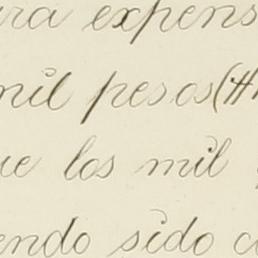 ra expens
mil pesos(#
ue los mil
endo sido c